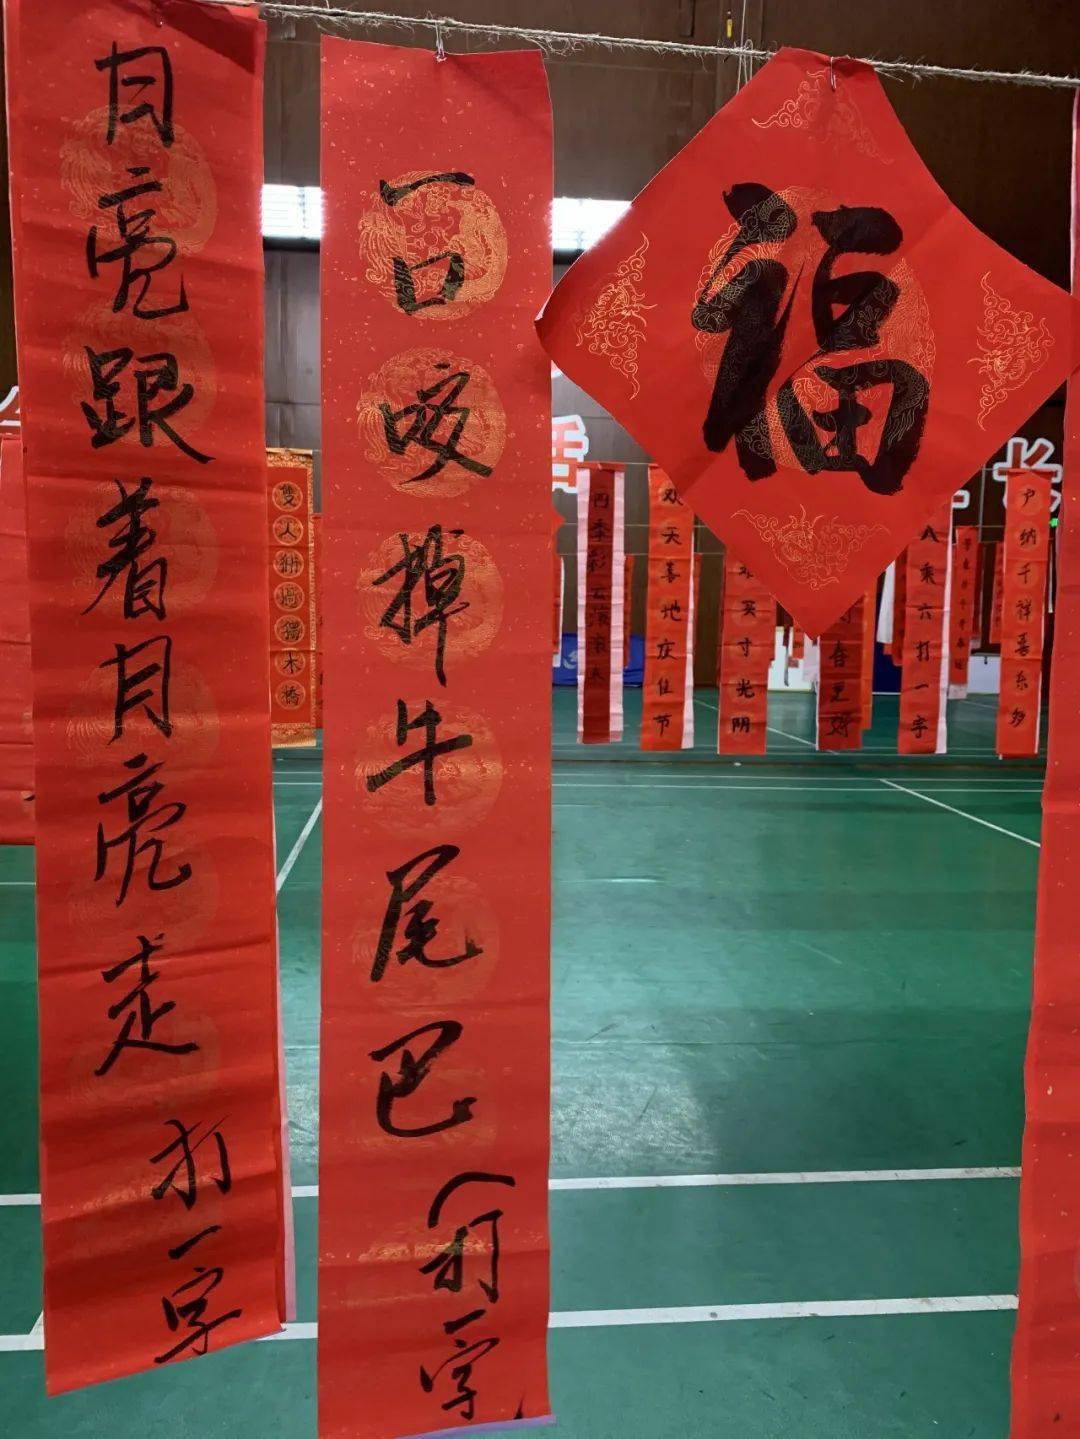 月亮跟着月亮走
打一字
一口咬掉牛尾巴
（打一字
福
雙人
獨木橋
四季彩云滚滚来
欢天喜地庆佳节
买寸光阴
春更好
八乘六打一字
户纳千祥喜乐多
长